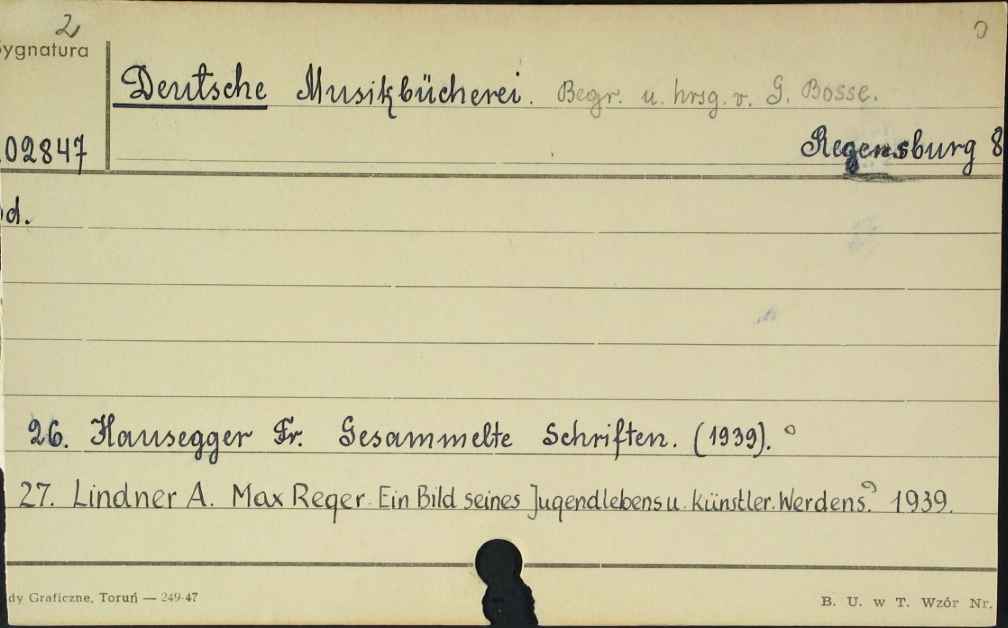 2
Sygnatura
Deutsche Musikbücherei. Begr. u. hrsg. v. G. Bosse.
02847
Regensburg 8
d.
26. Hausegger Fr. Gesammelte Schriften. (1939).
27. Lindner A. Max Reger. Ein Bild seines Jugendlebens u. künstler. Werdens. 1939.
dy Graficzne, Toruń — 249-47
B. U. w T. Wzór Nr.